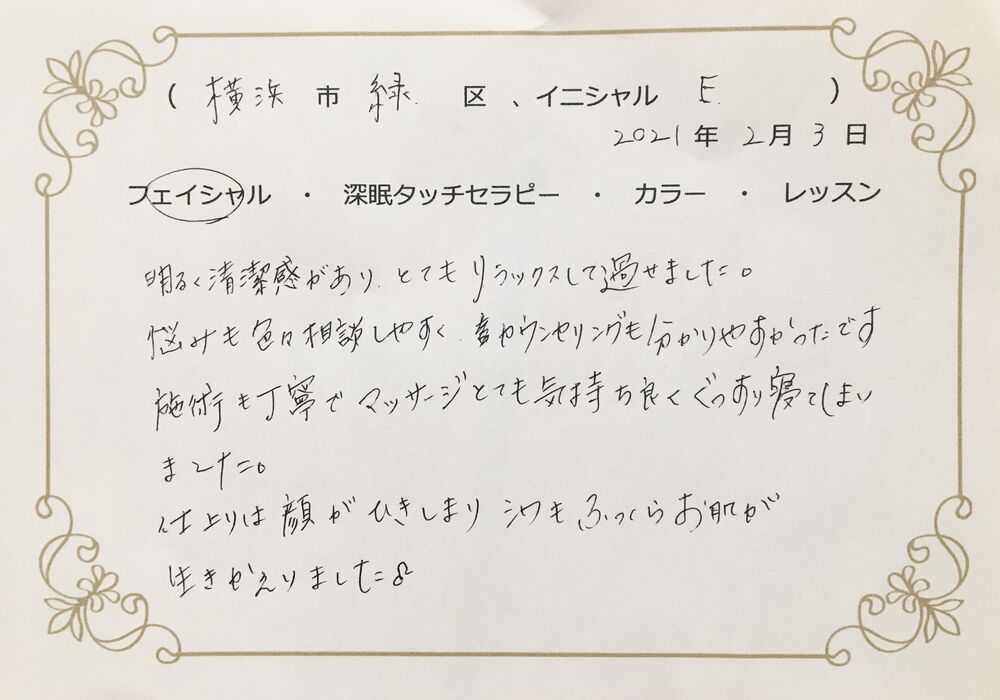 ( 横浜 市 緑 区 、イニシャル E. )
2021 年 2 月 3 日
フェイシャル ・ 深眠タッチセラピー ・ カラー ・ レッスン
明るく清潔感があり、とてもリラックスして過せました。
悩みも色々相談しやすく、カウンセリングも分かりやすかったです
施術も丁寧で マッサージとても気持ち良くぐっすり寝てしまい
ました。
仕上りは顔がひきしまり シワもふっくらお肌が
生きかえりました